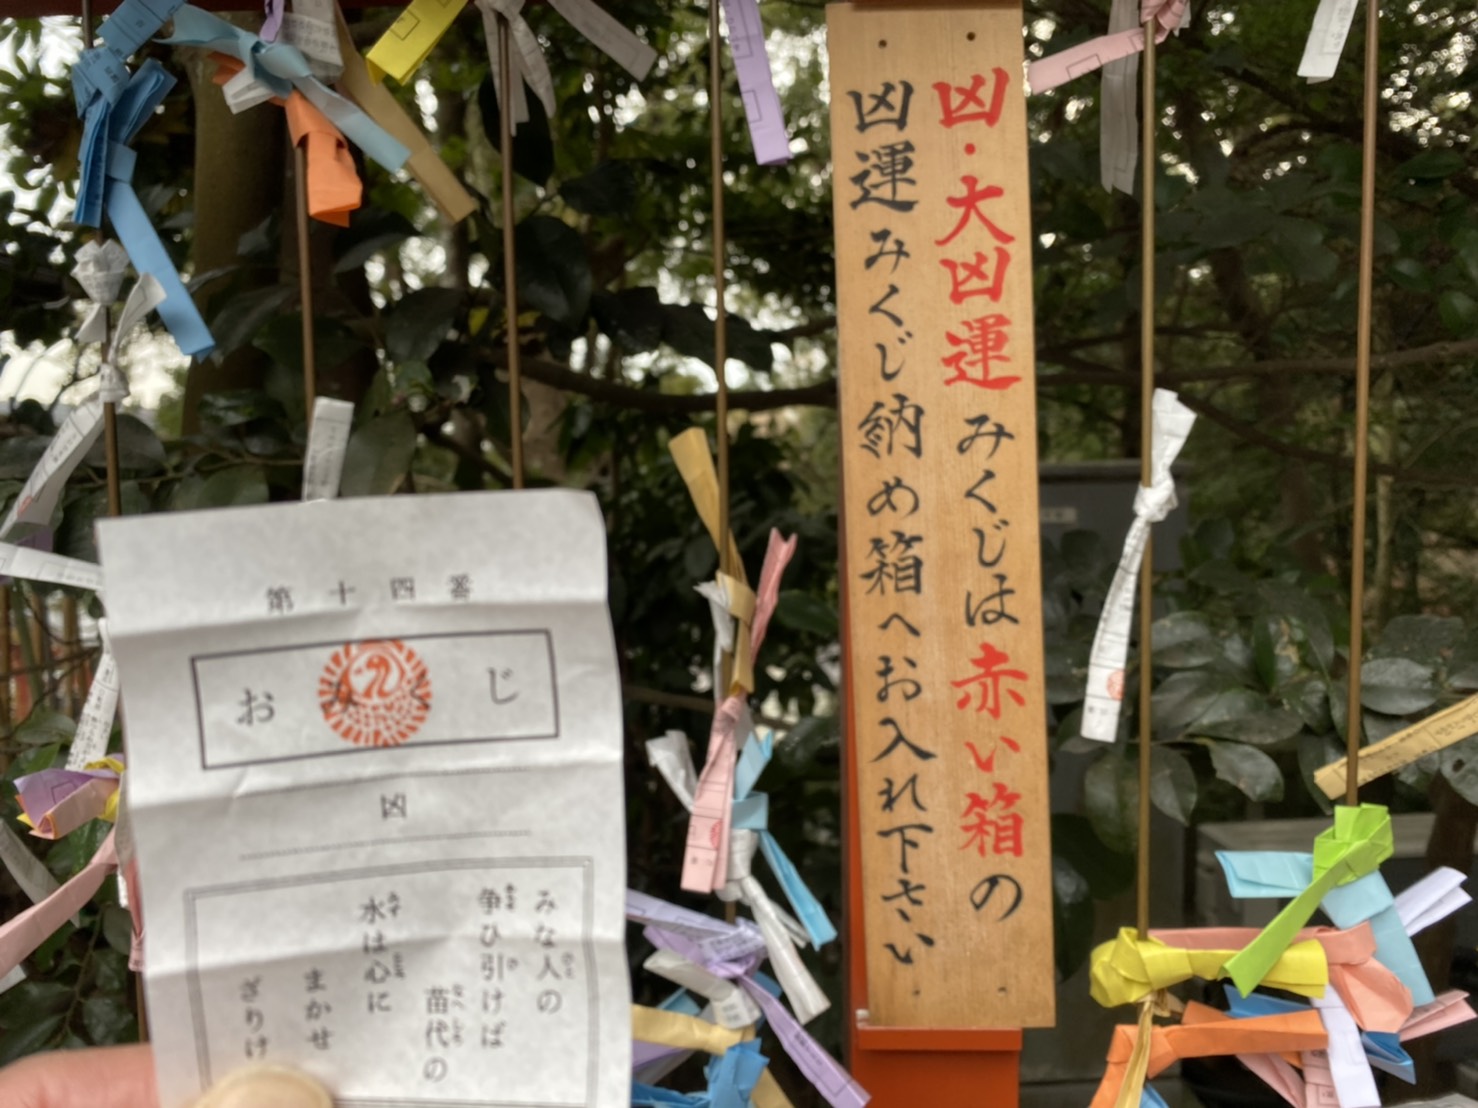 凶・大凶運みくじは赤い箱の
凶運みくじ納め箱へお入れ下さい
第十四番
おみくじ
凶
みな人の
争ひ引けば
苗代の
水は心に
まかせ
ざりけ